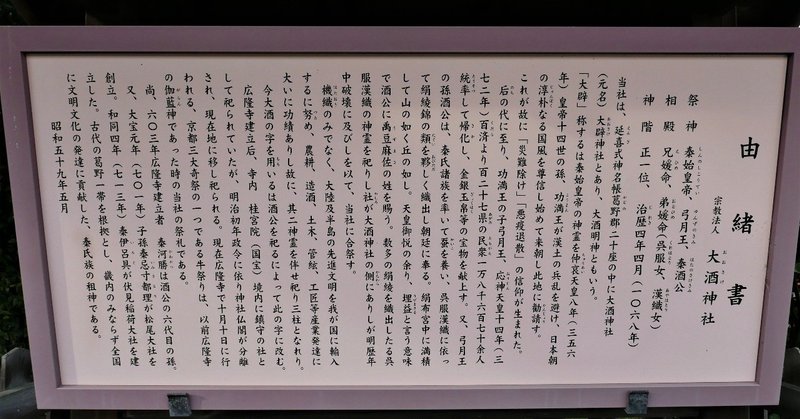 由緒書
宗教法人 大酒神社
祭神 秦始皇帝、弓月王、秦酒公
相殿 兄媛命、弟媛命(呉服女、漢織女)
神階 正一位、治暦四年四月(一〇六八年)
当社は、延喜式神名帳葛野郡二十座の中に大酒神社
(元名)大辟神社とあり、大酒明神ともいう。
「大辟」称するは秦始皇帝の神霊を仲哀天皇八年(三五六
年)皇帝十四世の孫、功満王が漢土の兵乱を避け、日本朝
の淳朴なる国風を尊信し始めて来朝し此地に勧請す。
これが故に「災難除け」「悪疫退散」の信仰が生まれた。
后の代に至り、功満王の子弓月王、応神天皇十四年(三
七二年)百済より百二十七県の民衆一万八千六百七十余人
統率して帰化し、金銀玉帛等の宝物を献上す。又、弓月王
の孫酒公は、秦氏諸族を率いて蚕を養い、呉服漢織に依っ
て絹綾錦の類を夥しく織出し朝廷に奉る。絹布宮中に満積
して山の如く丘の如し。天皇御悦の余り、埋益と言う意味
で酒公に禹豆麻佐の姓を賜う。数多の絹綾を織出したる呉
服漢織の神霊を祀りし社が大酒神社の側にありしが明歴年
中破壊に及びしを以て、当社に合祭す。
機織のみでなく、大陸及半島の先進文明を我が国に輸入
するに努め、農耕、造酒、土木、管絃、工匠等産業発達に
大いに功績ありし故に、其二神霊を併せ祀り三柱となれり。
今大酒の字を用いるは酒公を祀るによって此の字に改む。
広隆寺建立后、寺内 桂宮院(国宝)境内に鎮守の社と
して祀られていたが、明治初年政令に依り神社仏閣が分離
され、現在地に移し祀られる。現在広隆寺で十月十日に行
われる、京都三大奇祭の一つである牛祭りは、以前広隆寺
の伽藍神であった時の当社の祭礼である。
尚、六〇三年広隆寺建立者 秦河勝は酒公の六代目の孫。
又、大宝元年(七〇一年)子孫秦忌寸都理が松尾大社を
創立。和同四年(七一三年)秦伊呂具が伏見稲荷大社を建
立した。古代の葛野一帯を根拠とし、畿内のみならず全国
に文明文化の発達に貢献した、秦氏族の祖神である。
昭和五十九年五月